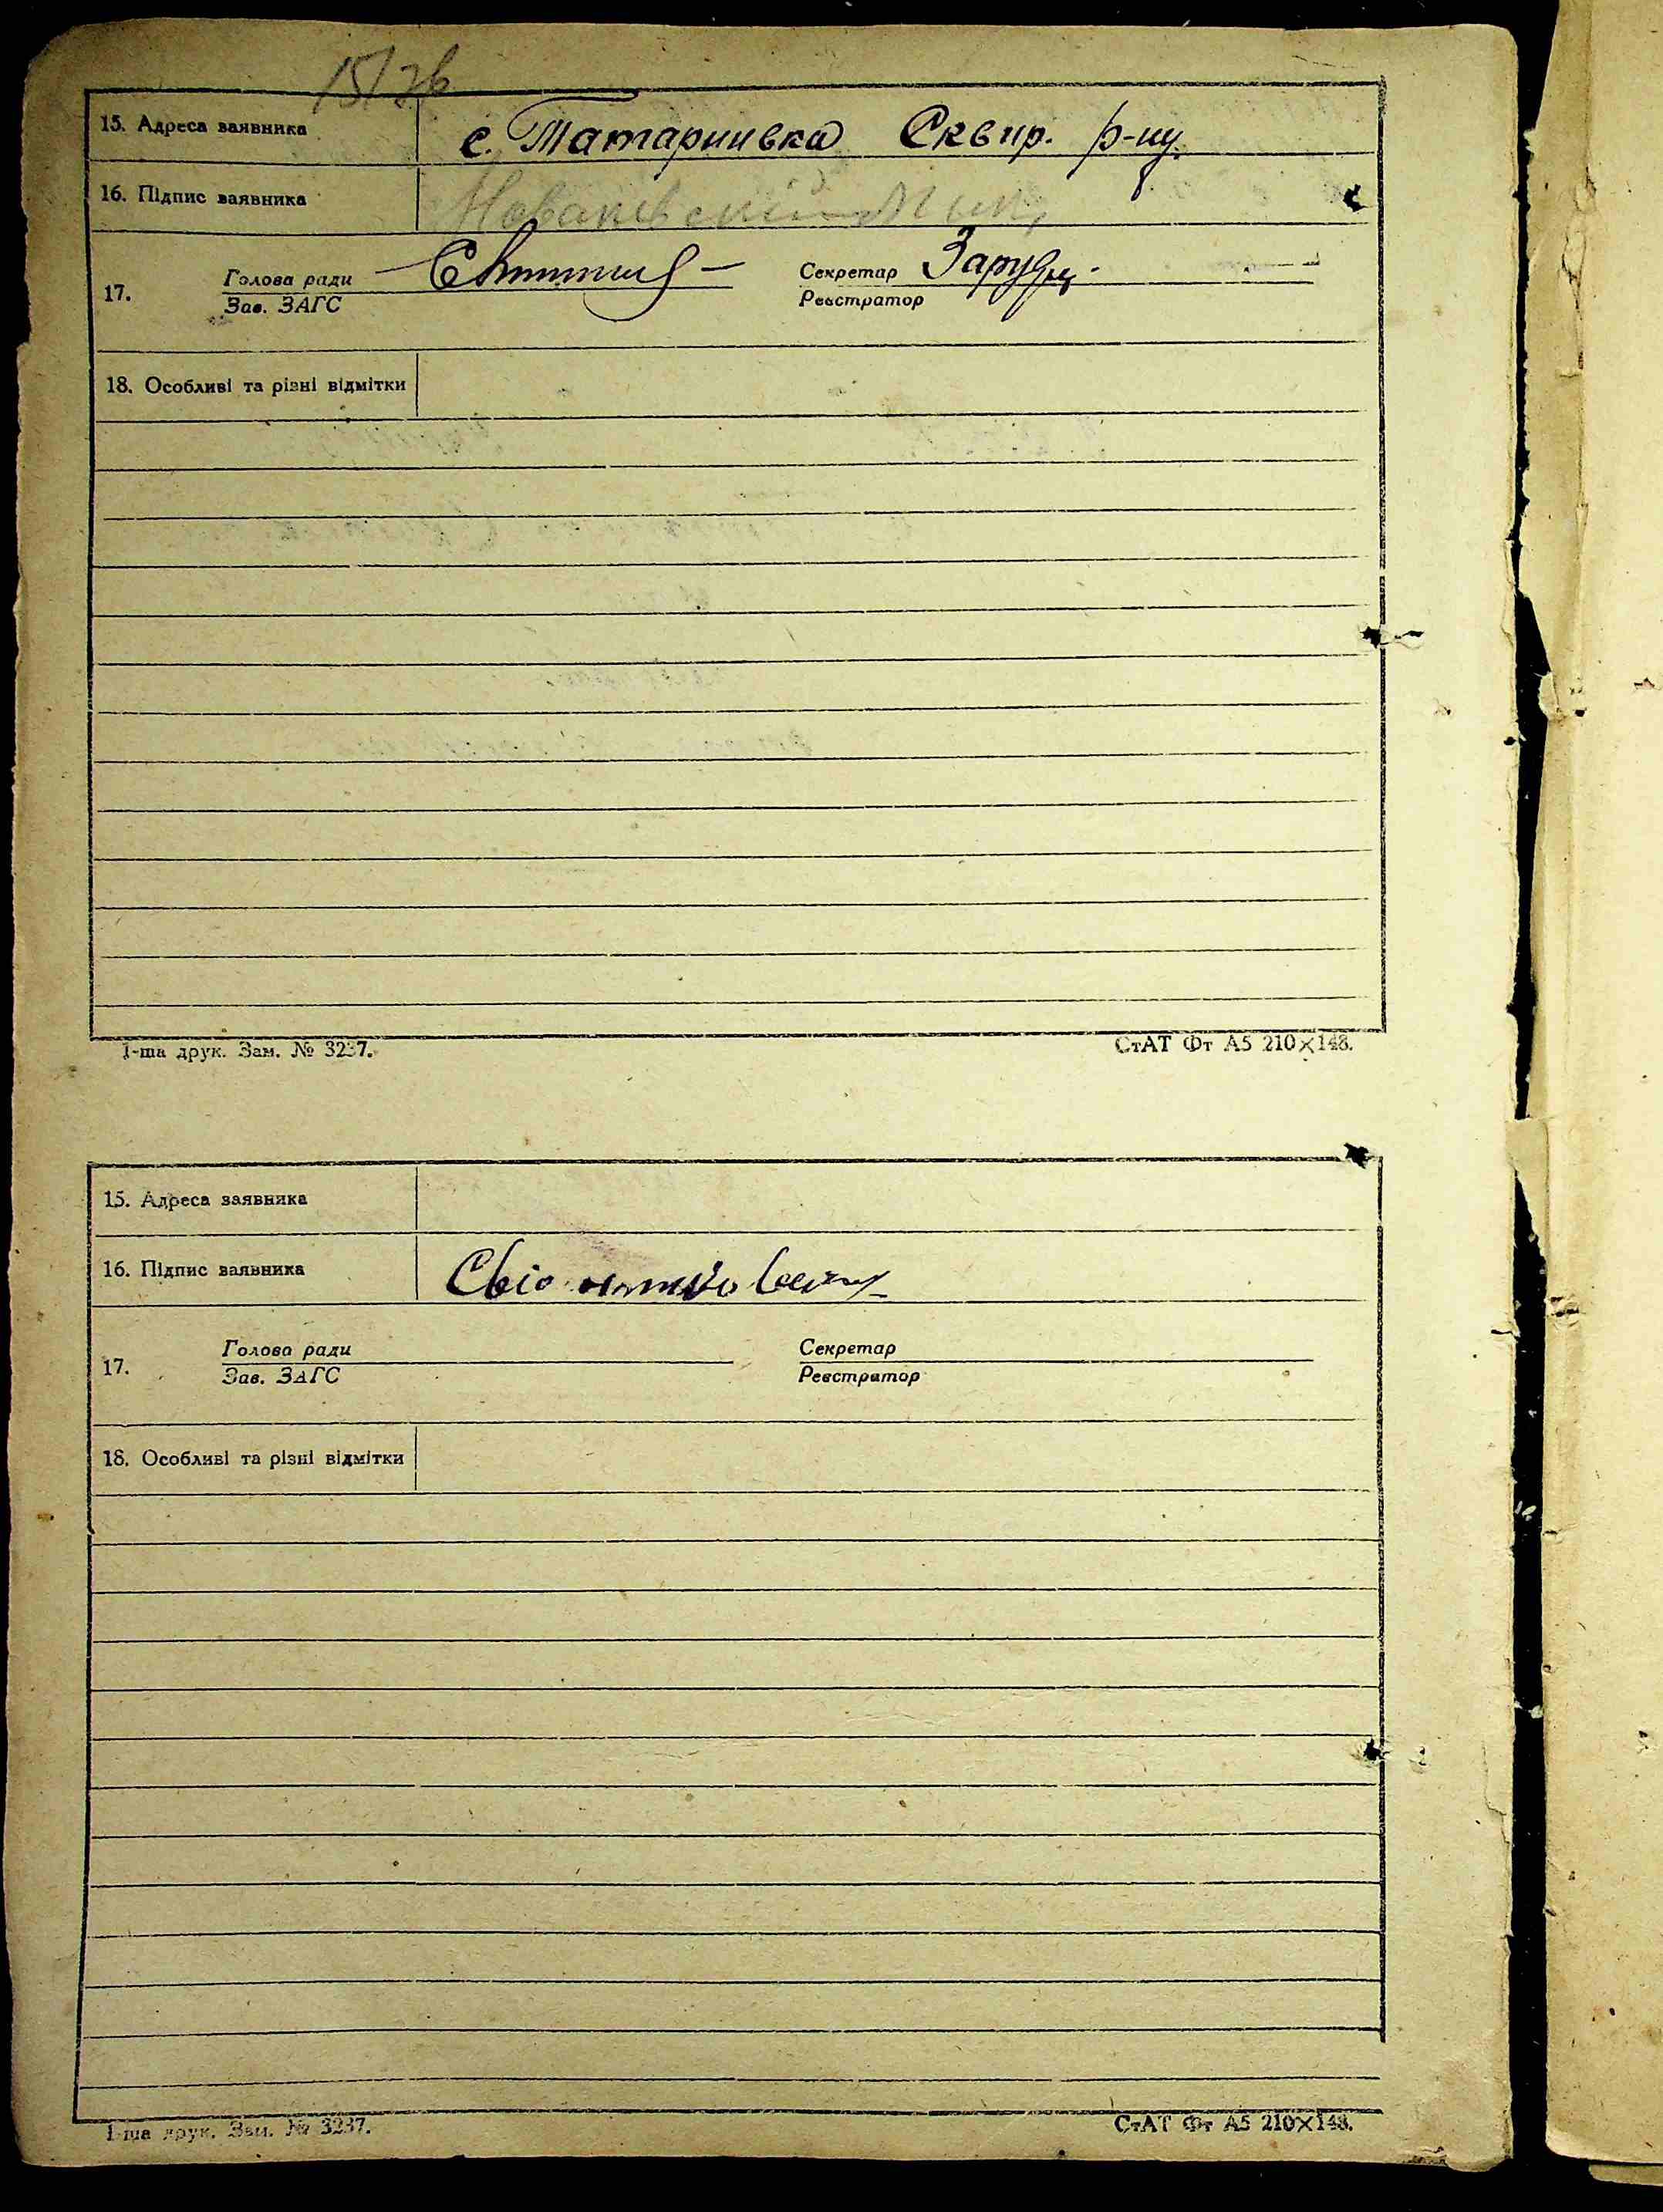 15. Адреса заявника с. Татаринівка Сквир. р-ну.
16. Підпис заявника
17. Голова ради Секретар Заруд
Зав. ЗАГС Реєстратор
18. Особливі та різні відмітки
1-ша друк. Зам. № 3237. СтАТ Фт А5 210×148.
15. Адреса заявника
16. Підпис заявника
17. Голова ради Секретар
Зав. ЗАГС Реєстратор
18. Особливі та різні відмітки
1-ша друк. Зам. № 3237. СтАТ Фт А5 210×148.